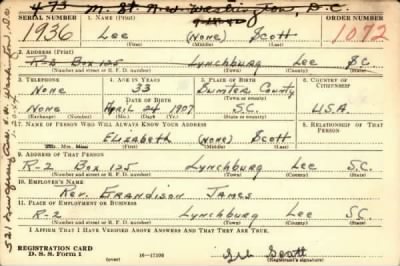 473 M. St. N.W. Washington, D.C.
SERIAL NUMBER 1. NAME (Print) ORDER NUMBER
1936 Lee (NONE) Scott 1072
(First) (Middle) (Last)
2. ADDRESS (Print)
R-2 Box 125 Lynchburg Lee S.C.
(Number and street or R. F. D. number) (Town) (County) (State)
3. TELEPHONE 4. AGE IN YEARS 5. PLACE OF BIRTH 6. COUNTRY OF CITIZENSHIP
None 33 Sumter County
DATE OF BIRTH (Town or county)
None April 24 1907 S.C. U.S.A.
(Exchange) (Number) (Mo.) (Day) (Yr.) (State or country)
7. NAME OF PERSON WHO WILL ALWAYS KNOW YOUR ADDRESS 8. RELATIONSHIP OF THAT PERSON
Elizabeth (None) Scott
(Mr., Mrs., Miss) (First) (Middle) (Last)
9. ADDRESS OF THAT PERSON
R-2 Box 125 Lynchburg Lee S.C.
(Number and street or R. F. D. number) (Town) (County) (State)
10. EMPLOYER'S NAME
Rev. Grandison James
11. PLACE OF EMPLOYMENT OR BUSINESS
R-2 Lynchburg Lee S.C.
(Number and street or R. F. D. number) (Town) (County) (State)
I AFFIRM THAT I HAVE VERIFIED ABOVE ANSWERS AND THAT THEY ARE TRUE.
REGISTRATION CARD
D. S. S. Form 1 (over) 16-17105 Lee Scott
(Registrant's signature)